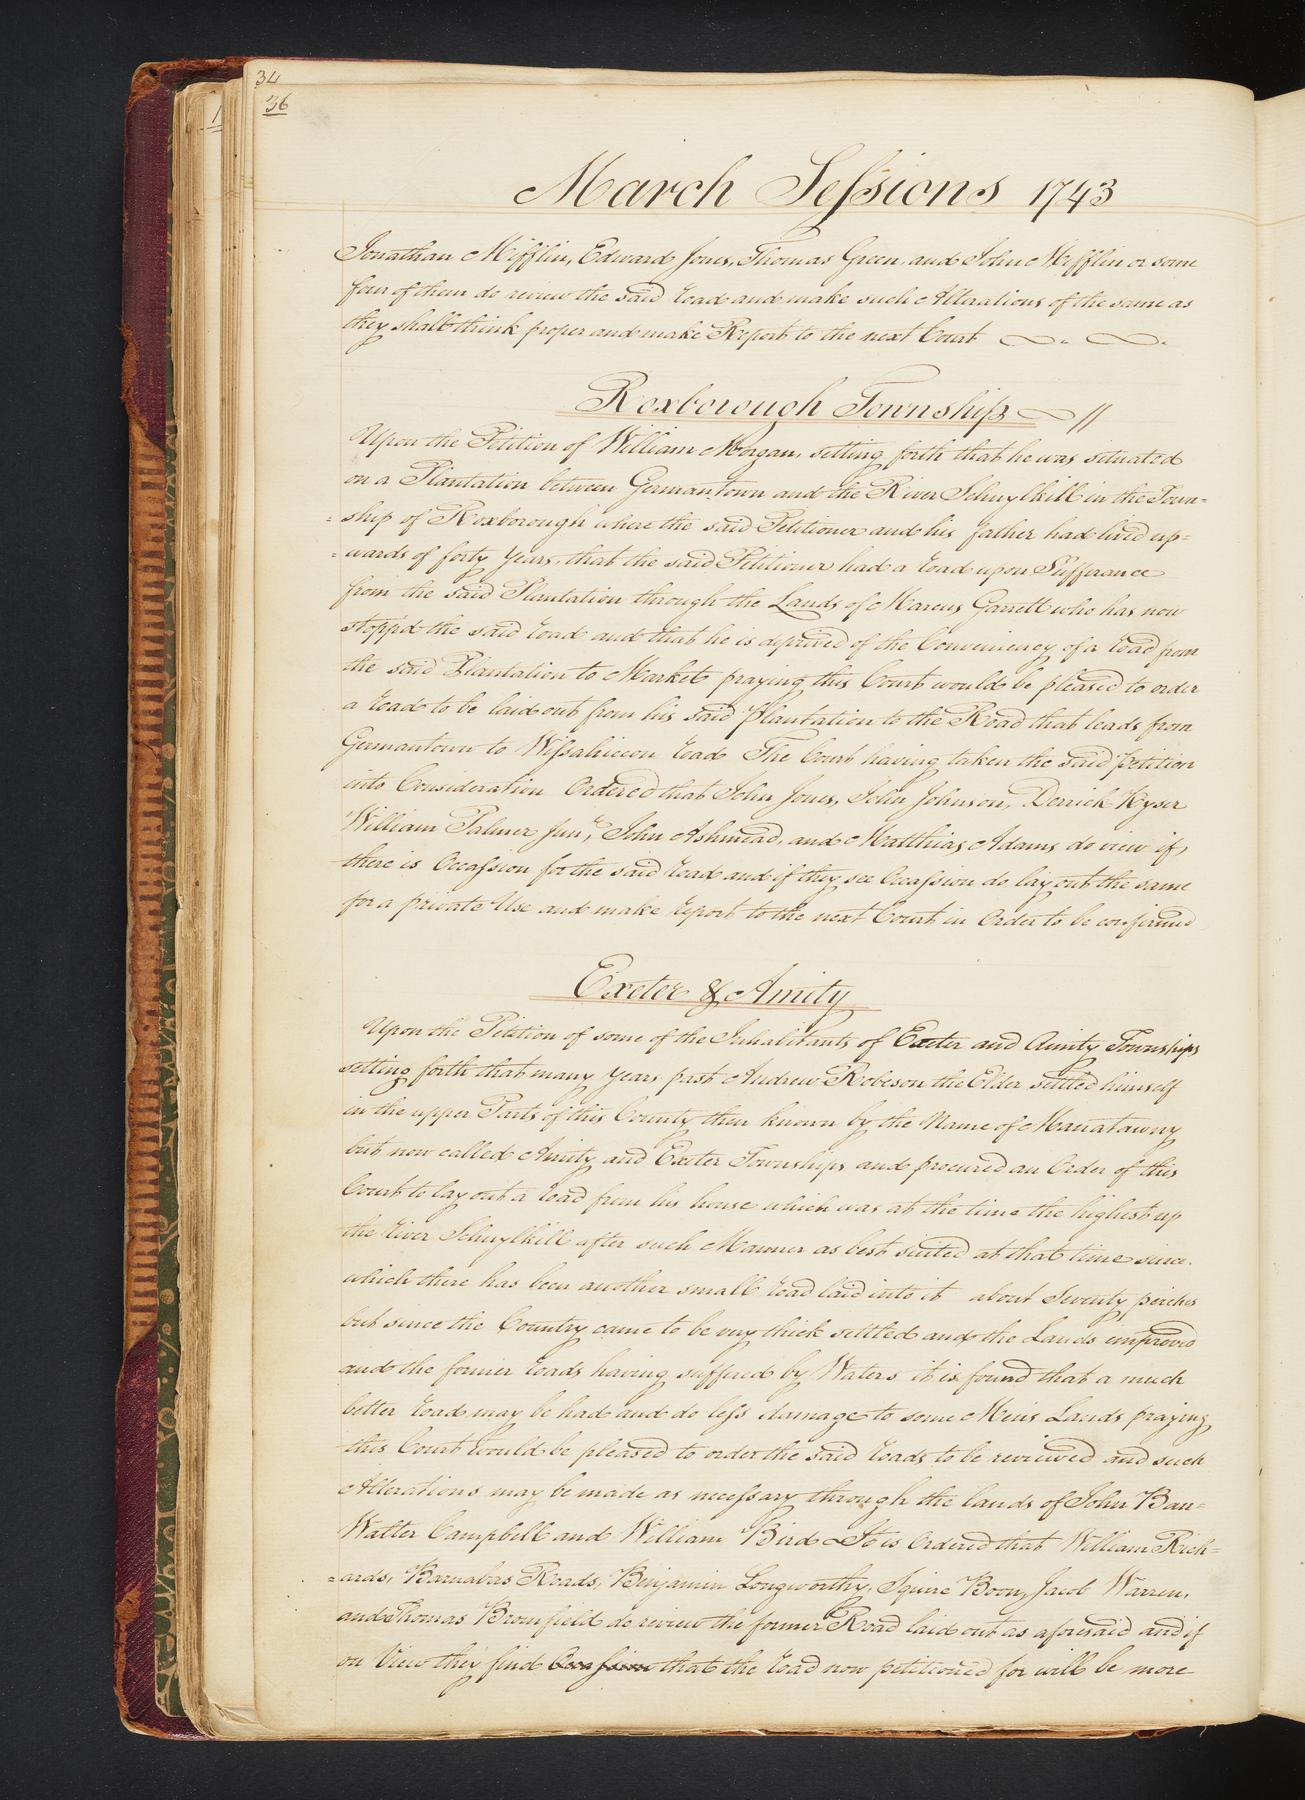 34
36
March Sessions 1743
Jonathan Mifflin, Edward Jones, Thomas Green, and John Mifflin or some
four of them do review the said road and make such Alterations of the same as
they shall think proper and make Report to the next Court
Roxborough Township
Upon the Petition of William Morgan, setting forth that he was situated
on a Plantation between Germantown and the River Schuylkill in the Town-
=ship of Roxborough where the said Petitioner and his father had lived up=
=wards of forty years, that the said Petitioner had a road upon Sufferance
from the said Plantation through the Lands of Marcus Garrett who has now
stopp'd the said road and that he is deprived of the Conveniency of a road from
the said Plantation to Market praying this Court would be pleased to order
a road to be laid out from his said plantation to the Road that leads from
Germantown to Wissahiccon road The Court having taken the said petition
into Consideration Ordered that John Jones, John Johnson, Derrick Kyser
William Palmer Junr, John Ashmead, and Matthias Adams do view if,
there is Occassion for the said road and if they see Occassion do lay out the same
for a private Use and make report to the next Court in Order to be confirmed
Exeter & Amity
Upon the Petition of some of the Inhabitants of Exeter and Amity Townships
setting forth that many years past Andrew Robeson the Elder settled himself
in the upper Parts of this County then known by the Name of Manatawny
but now called Amity and Exeter Townships and procured an Order of this
Court to lay out a road from his house which was at the time the highest up
the river Schuylkill after such Manner as best suited at that time since.
which there has been another small road laid into it about Seventy perches
but since the Country came to be very thick settled and the Lands improved
and the former roads having suffered by Waters it is found that a much
better road may be had and do less damage to some Men's Lands praying
this Court would be pleased to order the said roads to be reviewed and such
Alterations may be made as necessary through the lands of John Bau=
Walter Campbell and William Bird It is Ordered that William Rich=
=ards, Barnabas Roads, Benjamin Longworthy, Squire Boon, Jacob Warren,
and Thomas Bromfield do review the former Road laid out as aforesaid and if
on View they find Occassion that the road now petitioned for will be more